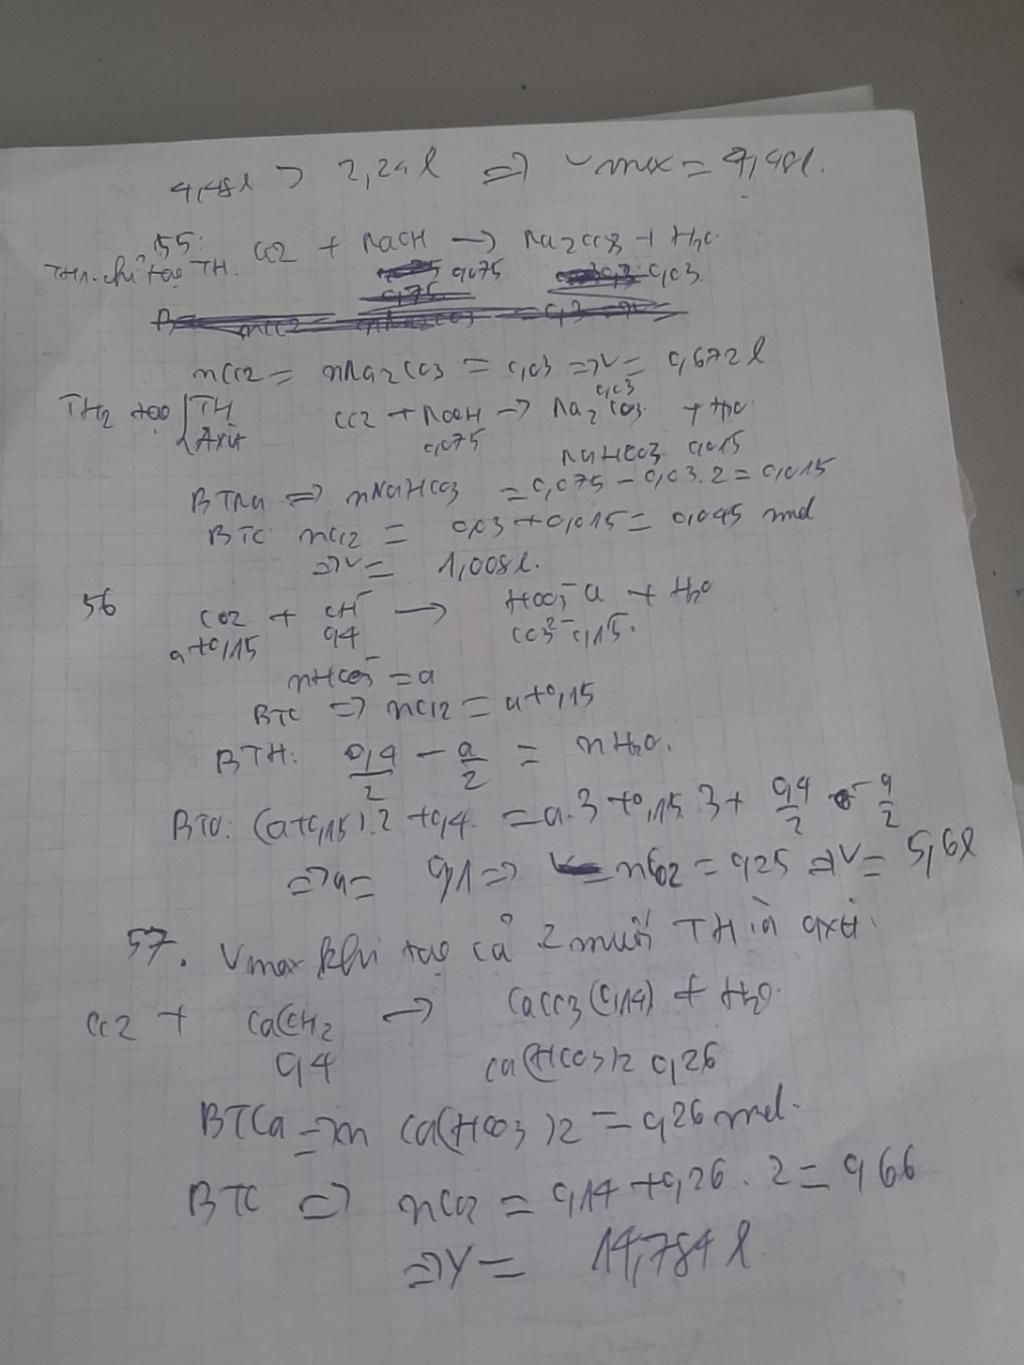 4,48l > 2,24l => Vmax = 4,48l.
55: CO2 + NaOH → Na2CO3 + H2O
TH1: chỉ tạo TH. 0,075 0,03
nCO2 = nNa2CO3 = 0,03 => V = 0,672l
TH2 tạo { TH CO2 + NaOH → Na2CO3 0,03 + H2O
Axit 0,075 NaHCO3 0,015
BTNa => nNaHCO3 = 0,075 - 0,03.2 = 0,015
BTC nCO2 = 0,03 + 0,015 = 0,045 mol
=> V = 1,008l.
56 CO2 + OH⁻ → HCO3⁻ a + H2O
a+0,15 0,4 CO3²⁻ 0,15.
nHCO3⁻ = a
BTC => nCO2 = a+0,15
BTH: 0,4/2 - a/2 = nH2O.
BTO: (a+0,15).2 + 0,4 = a.3 + 0,15.3 + 0,4/2 - a/2
=> a = 0,1 => nCO2 = 0,25 => V = 5,6l
57. Vmax khi tạo cả 2 muối TH và axit.
CO2 + Ca(OH)2 → CaCO3 (0,14) + H2O.
0,4 Ca(HCO3)2 0,26
BTCa => n Ca(HCO3)2 = 0,26 mol.
BTC => nCO2 = 0,14 + 0,26 . 2 = 0,66
=> V = 14,784 l